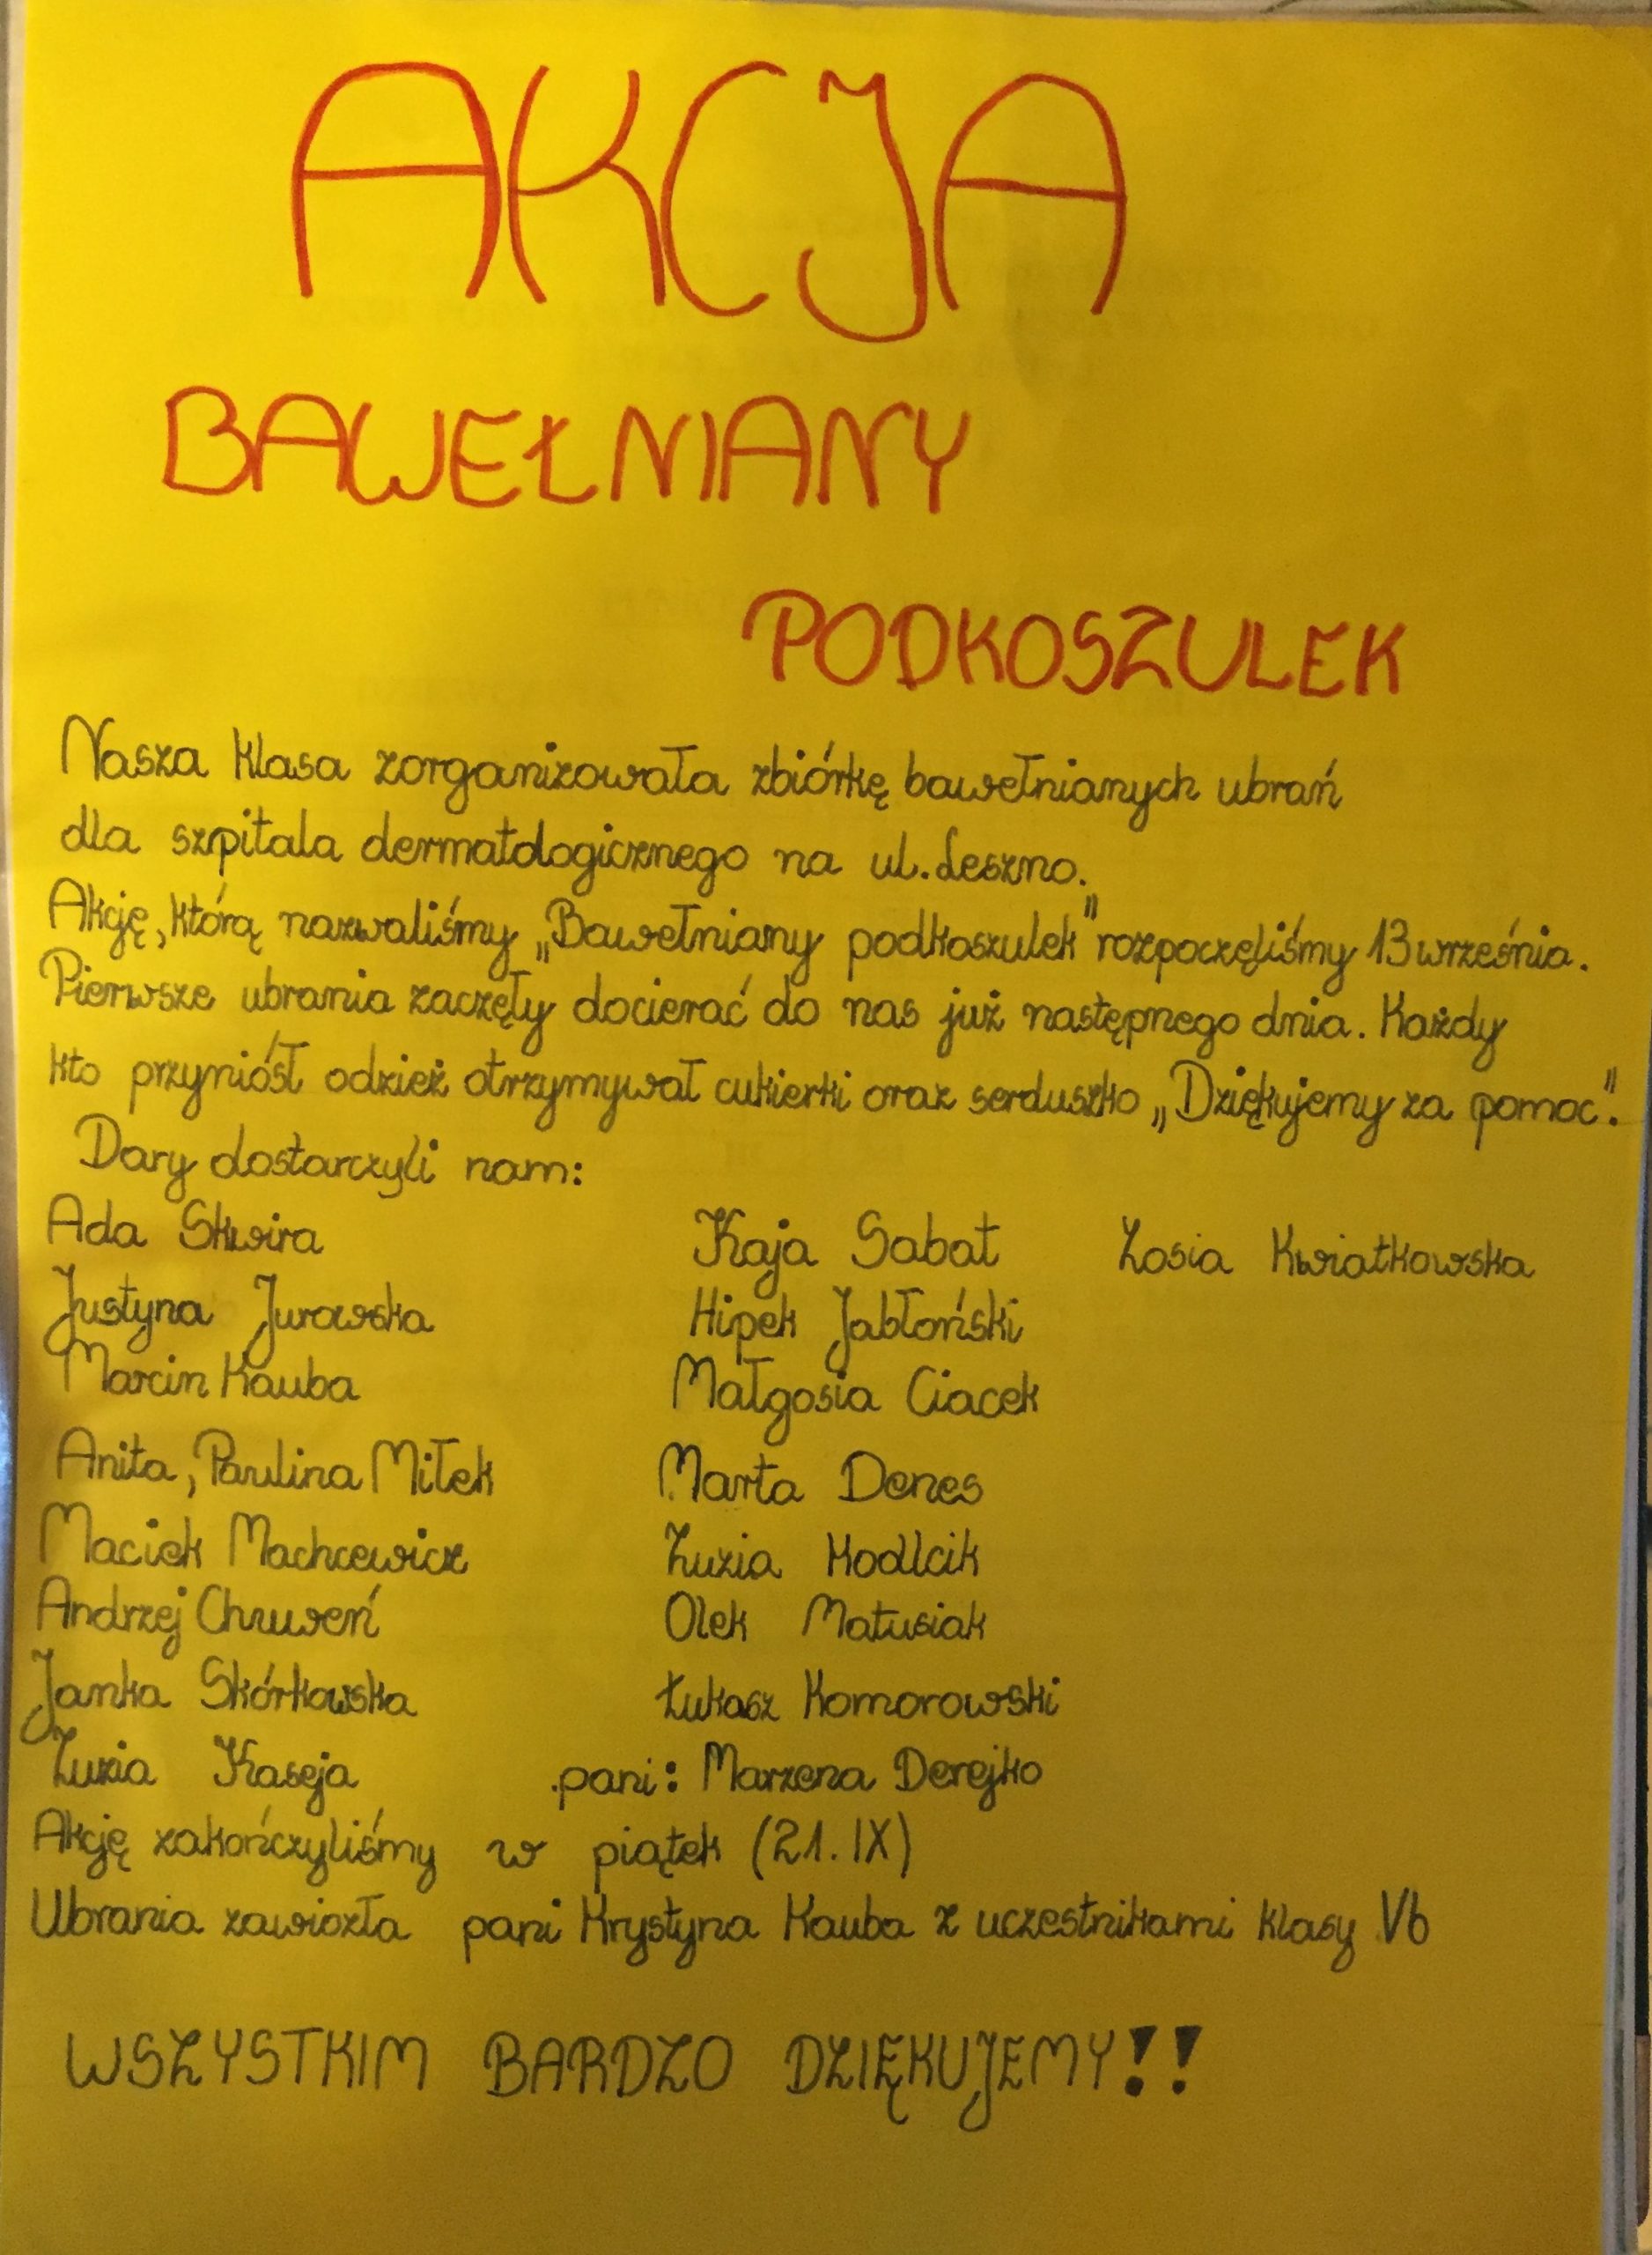 AKCJA
BAWEŁNIANY
PODKOSZULEK
Nasza klasa zorganizowała zbiórkę bawełnianych ubrań
dla szpitala dermatologicznego na ul. Leszno.
Akcję, którą nazwaliśmy „Bawełniany podkoszulek" rozpoczęliśmy 13 września.
Pierwsze ubrania zaczęły docierać do nas już następnego dnia. Każdy
kto przyniósł odzież otrzymywał cukierki oraz serduszko „Dziękujemy za pomoc".
Dary dostarczyli nam:
Ada Skwira Kaja Sabat Zosia Kwiatkowska
Justyna Jurowska Hipek Jabłoński
Marcin Kauba Małgosia Ciacek
Anita, Paulina Miłek Marta Denes
Maciek Machcewicz Zuzia Kodlcik
Andrzej Chruweń Olek Matusiak
Janka Skórkowska Łukasz Komorowski
Zuzia Kaseja pani: Marzena Derejko
Akcję zakończyliśmy w piątek (21. IX)
Ubrania zawiozła pani Krystyna Kauba z uczestnikami klasy Vb
WSZYSTKIM BARDZO DZIĘKUJEMY!!